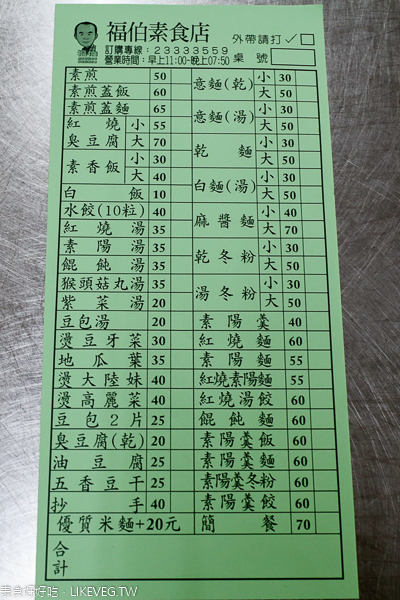 福伯素食店
訂購專線：23333559
營業時間：早上11:00-晚上07:50
外帶請打✓□
桌號
素煎 50
素煎蓋飯 60
素煎蓋麵 65
紅燒臭豆腐 小 55
大 70
素香飯 小 30
大 40
白飯 10
水餃(10粒) 40
紅燒湯 35
素陽湯 35
餛飩湯 35
猴頭菇丸湯 35
紫菜湯 20
豆包湯 20
燙豆牙菜 30
地瓜葉 35
燙大陸妹 40
燙高麗菜 40
豆包2片 25
臭豆腐(乾) 20
油豆腐 25
五香豆干 25
抄手 40
優質米麵+20元
合計
意麵(乾) 小 30
大 50
意麵(湯) 小 30
大 50
乾麵 小 30
大 50
白麵(湯) 小 30
大 50
麻醬麵 小 40
大 70
乾冬粉 小 30
大 50
湯冬粉 小 30
大 50
素陽羹 40
紅燒麵 60
素陽麵 55
紅燒素陽麵 55
紅燒湯餃 60
餛飩麵 60
素陽羹飯 60
素陽羹麵 60
素陽羹冬粉 60
素陽羹餃 60
簡餐 70
素食好好吃．LIKEVEG.TW